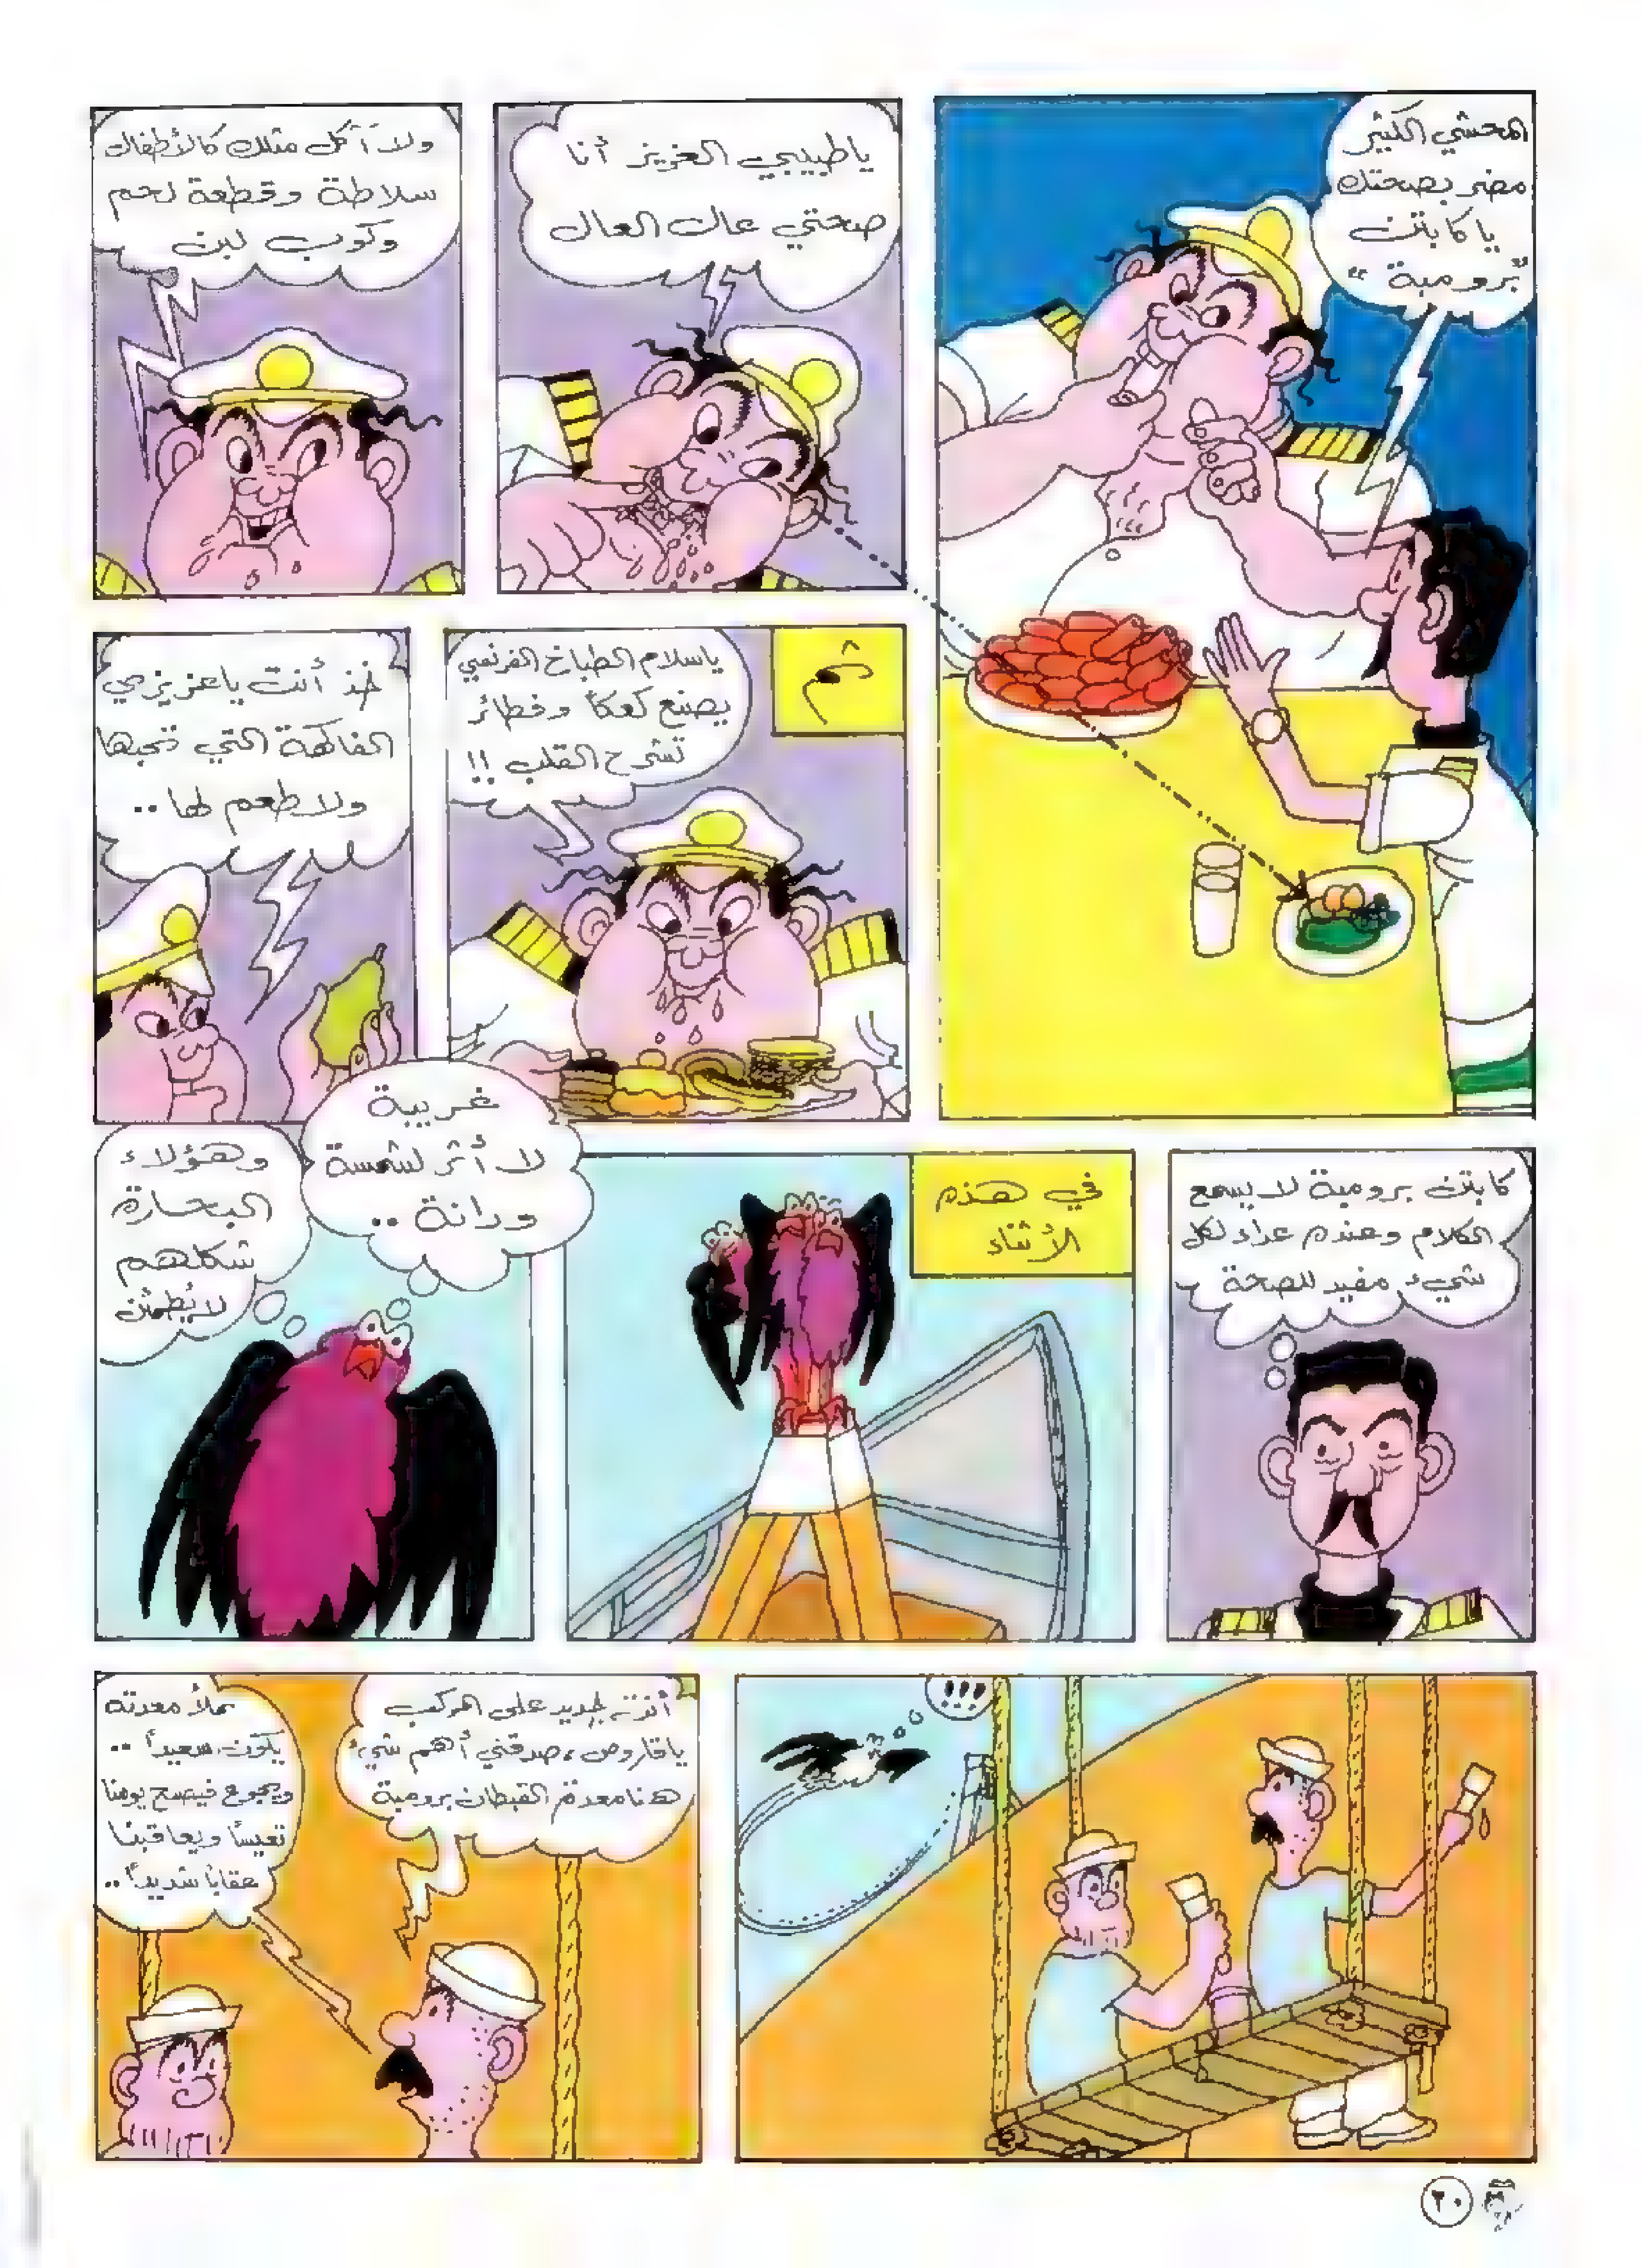 المحشي الكثير
مضر بصحتك
يا كابتن
"برومبة"
ياطبيبي العزيز أنا
صحتي عال العال
ولا آكل مثلك كالأطفال
سلاطة وقطعة لحم
وكوب لبن
ثم
ياسلام الطباخ الفرنسي
يصنع كعكاً وفطائر
تشرح القلب !!
خذ أنت ياعزيزي
الفاكهة التي تحبها
ولا طعم لها ..
كابتن برومبة لا يسمع
الكلام وعنده عداء لكل
شيء مفيد للصحة
في هذه
الأثناء
غريبة
لا أثر لشمسة
ودانة ..
وهؤلاء
البحارة
شكلهم
لايُطمئن
!!!
أنت جديد على المركب
ياقاروص، صدقني أهم شيء
هنا معدة القبطان برومبة
يملأ معدته
يكون سعيداً ..
ويجوع فيصبح يومنا
تعيساً ويعاقبنا
عقاباً شديداً ..
٢٠